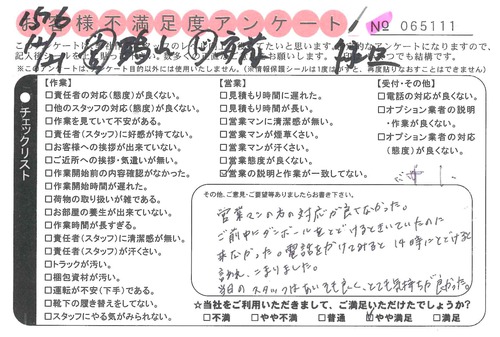 お客様不満足度アンケート
No 065111
【作業】
□責任者の対応(態度)が良くない。
□他のスタッフの対応(態度)が良くない。
□作業を見ていて不安がある。
□責任者(スタッフ)に好感が持てない。
□お客様への挨拶が出来ていない。
□ご近所への挨拶・気遣いが無い。
□作業開始前の内容確認がなかった。
□作業開始時間が遅れた。
□荷物の取り扱いが雑である。
□お部屋の養生が出来ていない。
□作業時間が長すぎる。
□責任者(スタッフ)に清潔感が無い。
□責任者(スタッフ)が汗くさい。
□トラックが汚い。
□梱包資材が汚い。
□運転が不安(下手)である。
□靴下の履き替えをしてない。
□スタッフにやる気がみられない。
【営業】
□見積もり時間に遅れた。
□見積もり時間が長い。
□営業マンに清潔感が無い。
□営業マンが煙草くさい。
□営業マンが汗くさい。
□営業態度が良くない。
☑営業の説明と作業が一致してない。
【受付・その他】
□電話の対応(態度)が良くない。
□オプション業者の説明
・作業が良くない。
□オプション業者の対応
(態度)が良くない。
●チェックリスト
その他、ご意見・ご要望等ありましたらお書き下さい。
営業マンの方の対応が良くなかった。
ご前中にダンボールをとどけるときいていたのに
来なかった。電話をかけてみると14時にとどけると
言われ、こまりました。
当日のスタッフはあいそも良く、とても気持ちが良かった。
☆当社をご利用いただきまして、ご満足いただけたでしょうか?
□不満 □やや不満 □普通 ☑やや満足 □満足